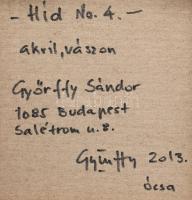 - Híd No. 4. -
akril, vászon
Győrffy Sándor
1085 Budapest
Salétrom u. 8.
Győrffy 2013.
ócsa